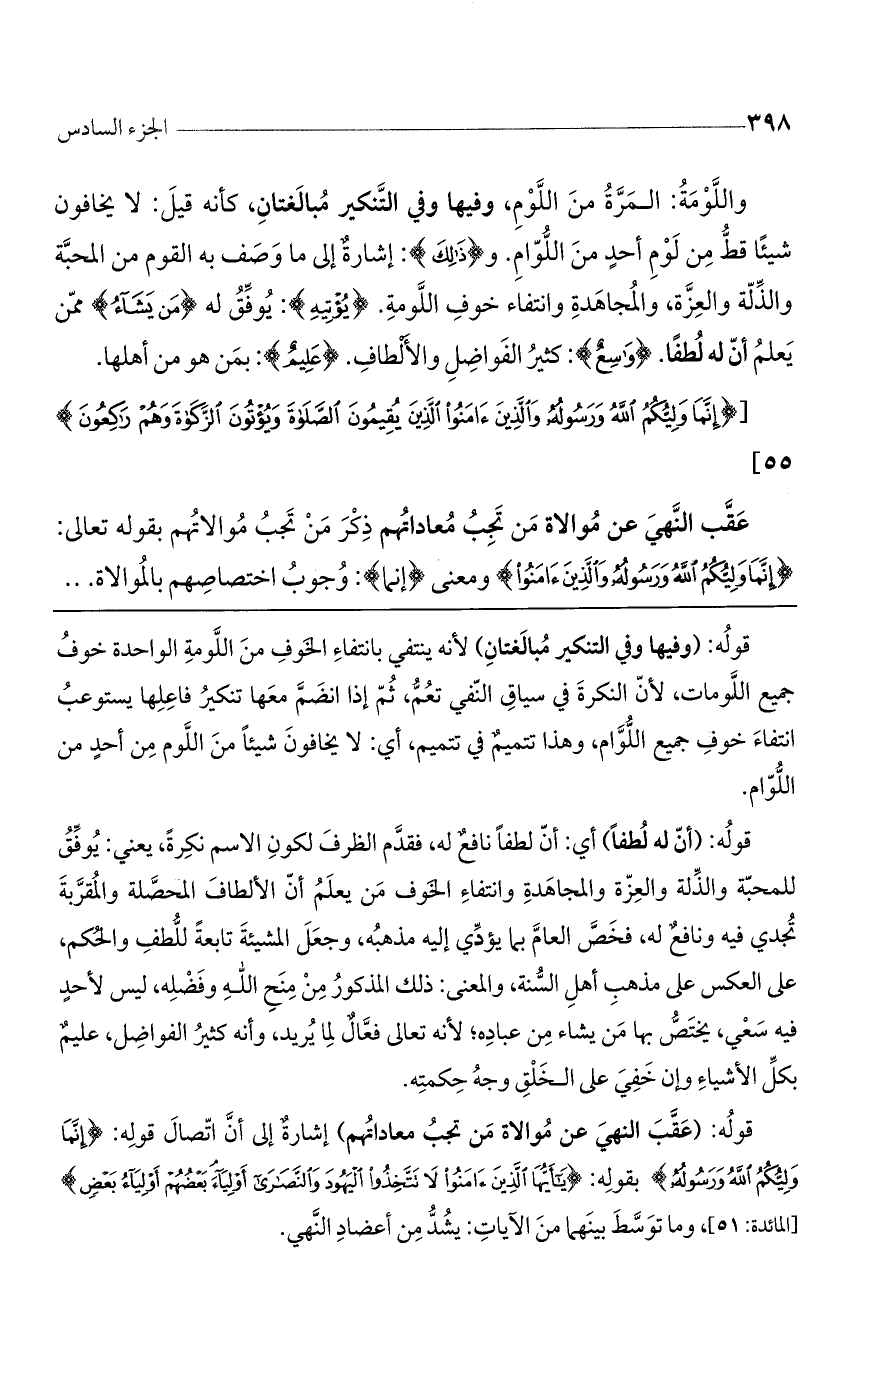 ٣٩٨ الجزء السادس
واللَّوْمَةُ: الـمَرَّةُ منَ اللَّوْمِ، وفيها وفي التَّنكير مُبالَغتانِ، كأنه قيلَ: لا يخافون
شيئًا قطُّ مِن لَوْمِ أحدٍ منَ اللُّوّامِ. و﴿ذَٰلِكَ﴾: إشارةٌ إلى ما وَصَف به القوم من المحبَّة
والذِّلّة والعِزَّة، والُمجاهَدةِ وانتفاء خوفِ اللَّومةِ. ﴿يُؤْتِيهِ﴾: يُوفِّقُ له ﴿مَن يَشَآءُ﴾ ممّن
يَعلمُ أنّ له لُطفًا. ﴿وَٰسِعٌ﴾: كثيرُ الفَواضِلِ والأَلْطافِ. ﴿عَلِيمٌ﴾: بمَن هو من أهلها.
[﴿إِنَّمَا وَلِيُّكُمُ ٱللَّهُ وَرَسُولُهُۥ وَٱلَّذِينَ ءَامَنُوا۟ ٱلَّذِينَ يُقِيمُونَ ٱلصَّلَوٰةَ وَيُؤْتُونَ ٱلزَّكَوٰةَ وَهُمْ رَٰكِعُونَ﴾
٥٥]
عَقَّب النَّهيَ عن مُوالاة مَن تَجِبُ مُعاداتُهم ذِكْرَ مَنْ تَجبُ مُوالاتُهم بقوله تعالى:
﴿إِنَّمَا وَلِيُّكُمُ ٱللَّهُ وَرَسُولُهُۥ وَٱلَّذِينَ ءَامَنُوا۟﴾ ومعنى ﴿إنما﴾: وُجوبُ اختصاصِهم بالمُوالاة. ..
قولُه: (وفيها وفي التنكير مُبالَغتانِ) لأنه ينتفي بانتفاءِ الخَوفِ منَ اللَّومةِ الواحدة خوفُ
جميع اللَّومات، لأنّ النكرةَ في سياقِ النّفي تعُمُّ، ثُمّ إذا انضَمَّ معَها تنكيرُ فاعِلِها يستوعبُ
انتفاءَ خوفِ جميع اللُّوَّام، وهذا تتميمٌ في تتميم، أي: لا يخافونَ شيئاً منَ اللَّوم مِن أحدٍ من
اللُّوّام.
قولُه: (أنّ له لُطفاً) أي: أنّ لطفاً نافعٌ له، فقدَّم الظرفَ لكونِ الاسم نكِرةً، يعني: يُوفِّقُ
للمحبّة والذِّلة والعِزّة والمجاهَدةِ وانتفاءِ الخَوف مَن يعلَمُ أنّ الألطافَ المحصَّلة والمُقرَّبةَ
تُجدي فيه ونافعٌ له، فخَصَّ العامَّ بما يؤدِّي إليه مذهبُه، وجعَلَ المشيئةَ تابعةً للُّطفِ والحُكم،
على العكس على مذهبِ أهلِ السُّنة، والمعنى: ذلك المذكورُ مِنْ مِنَحِ اللهِ وفَضْلِه، ليس لأحدٍ
فيه سَعْي، يختَصُّ بها مَن يشاء مِن عبادِه؛ لأنه تعالى فعَّالٌ لِما يُريد، وأنه كثيرُ الفواضِل، عليمٌ
بكلِّ الأشياءِ وإن خَفِيَ على الـخَلْقِ وجهُ حِكمتِه.
قولُه: (عَقَّبَ النهيَ عن مُوالاة مَن تجبُ معاداتُهم) إشارةٌ إلى أنَّ اتّصالَ قولِه: ﴿إِنَّمَا
وَلِيُّكُمُ ٱللَّهُ وَرَسُولُهُۥ﴾ بقولِه: ﴿يَٰٓأَيُّهَا ٱلَّذِينَ ءَامَنُوا۟ لَا تَتَّخِذُوا۟ ٱلْيَهُودَ وَٱلنَّصَٰرَىٰٓ أَوْلِيَآءَ بَعْضُهُمْ أَوْلِيَآءُ بَعْضٍ﴾
[المائدة: ٥١]، وما توَسَّطَ بينَهما منَ الآياتِ: يشُدُّ مِن أعضادِ النَّهي.